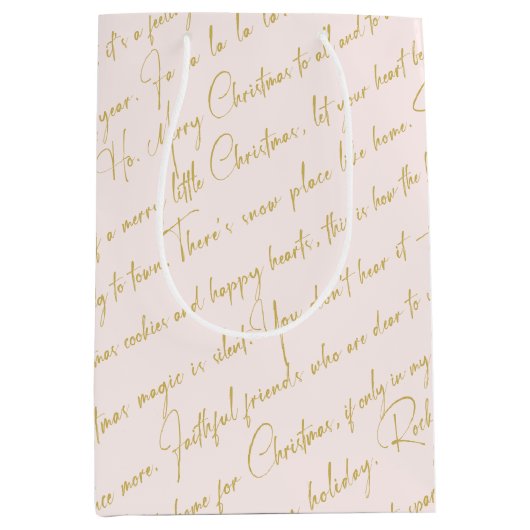 it's a feeling
year. Fa la la la la
Ho. Merry Christmas to all and to
a merry little Christmas, let your heart be
to town. There's snow place like home.
cookies and happy hearts, this is how the
magic is silent. You don't hear it –
more. Faithful friends who are dear to
home for Christmas, if only in my
holiday. Rock